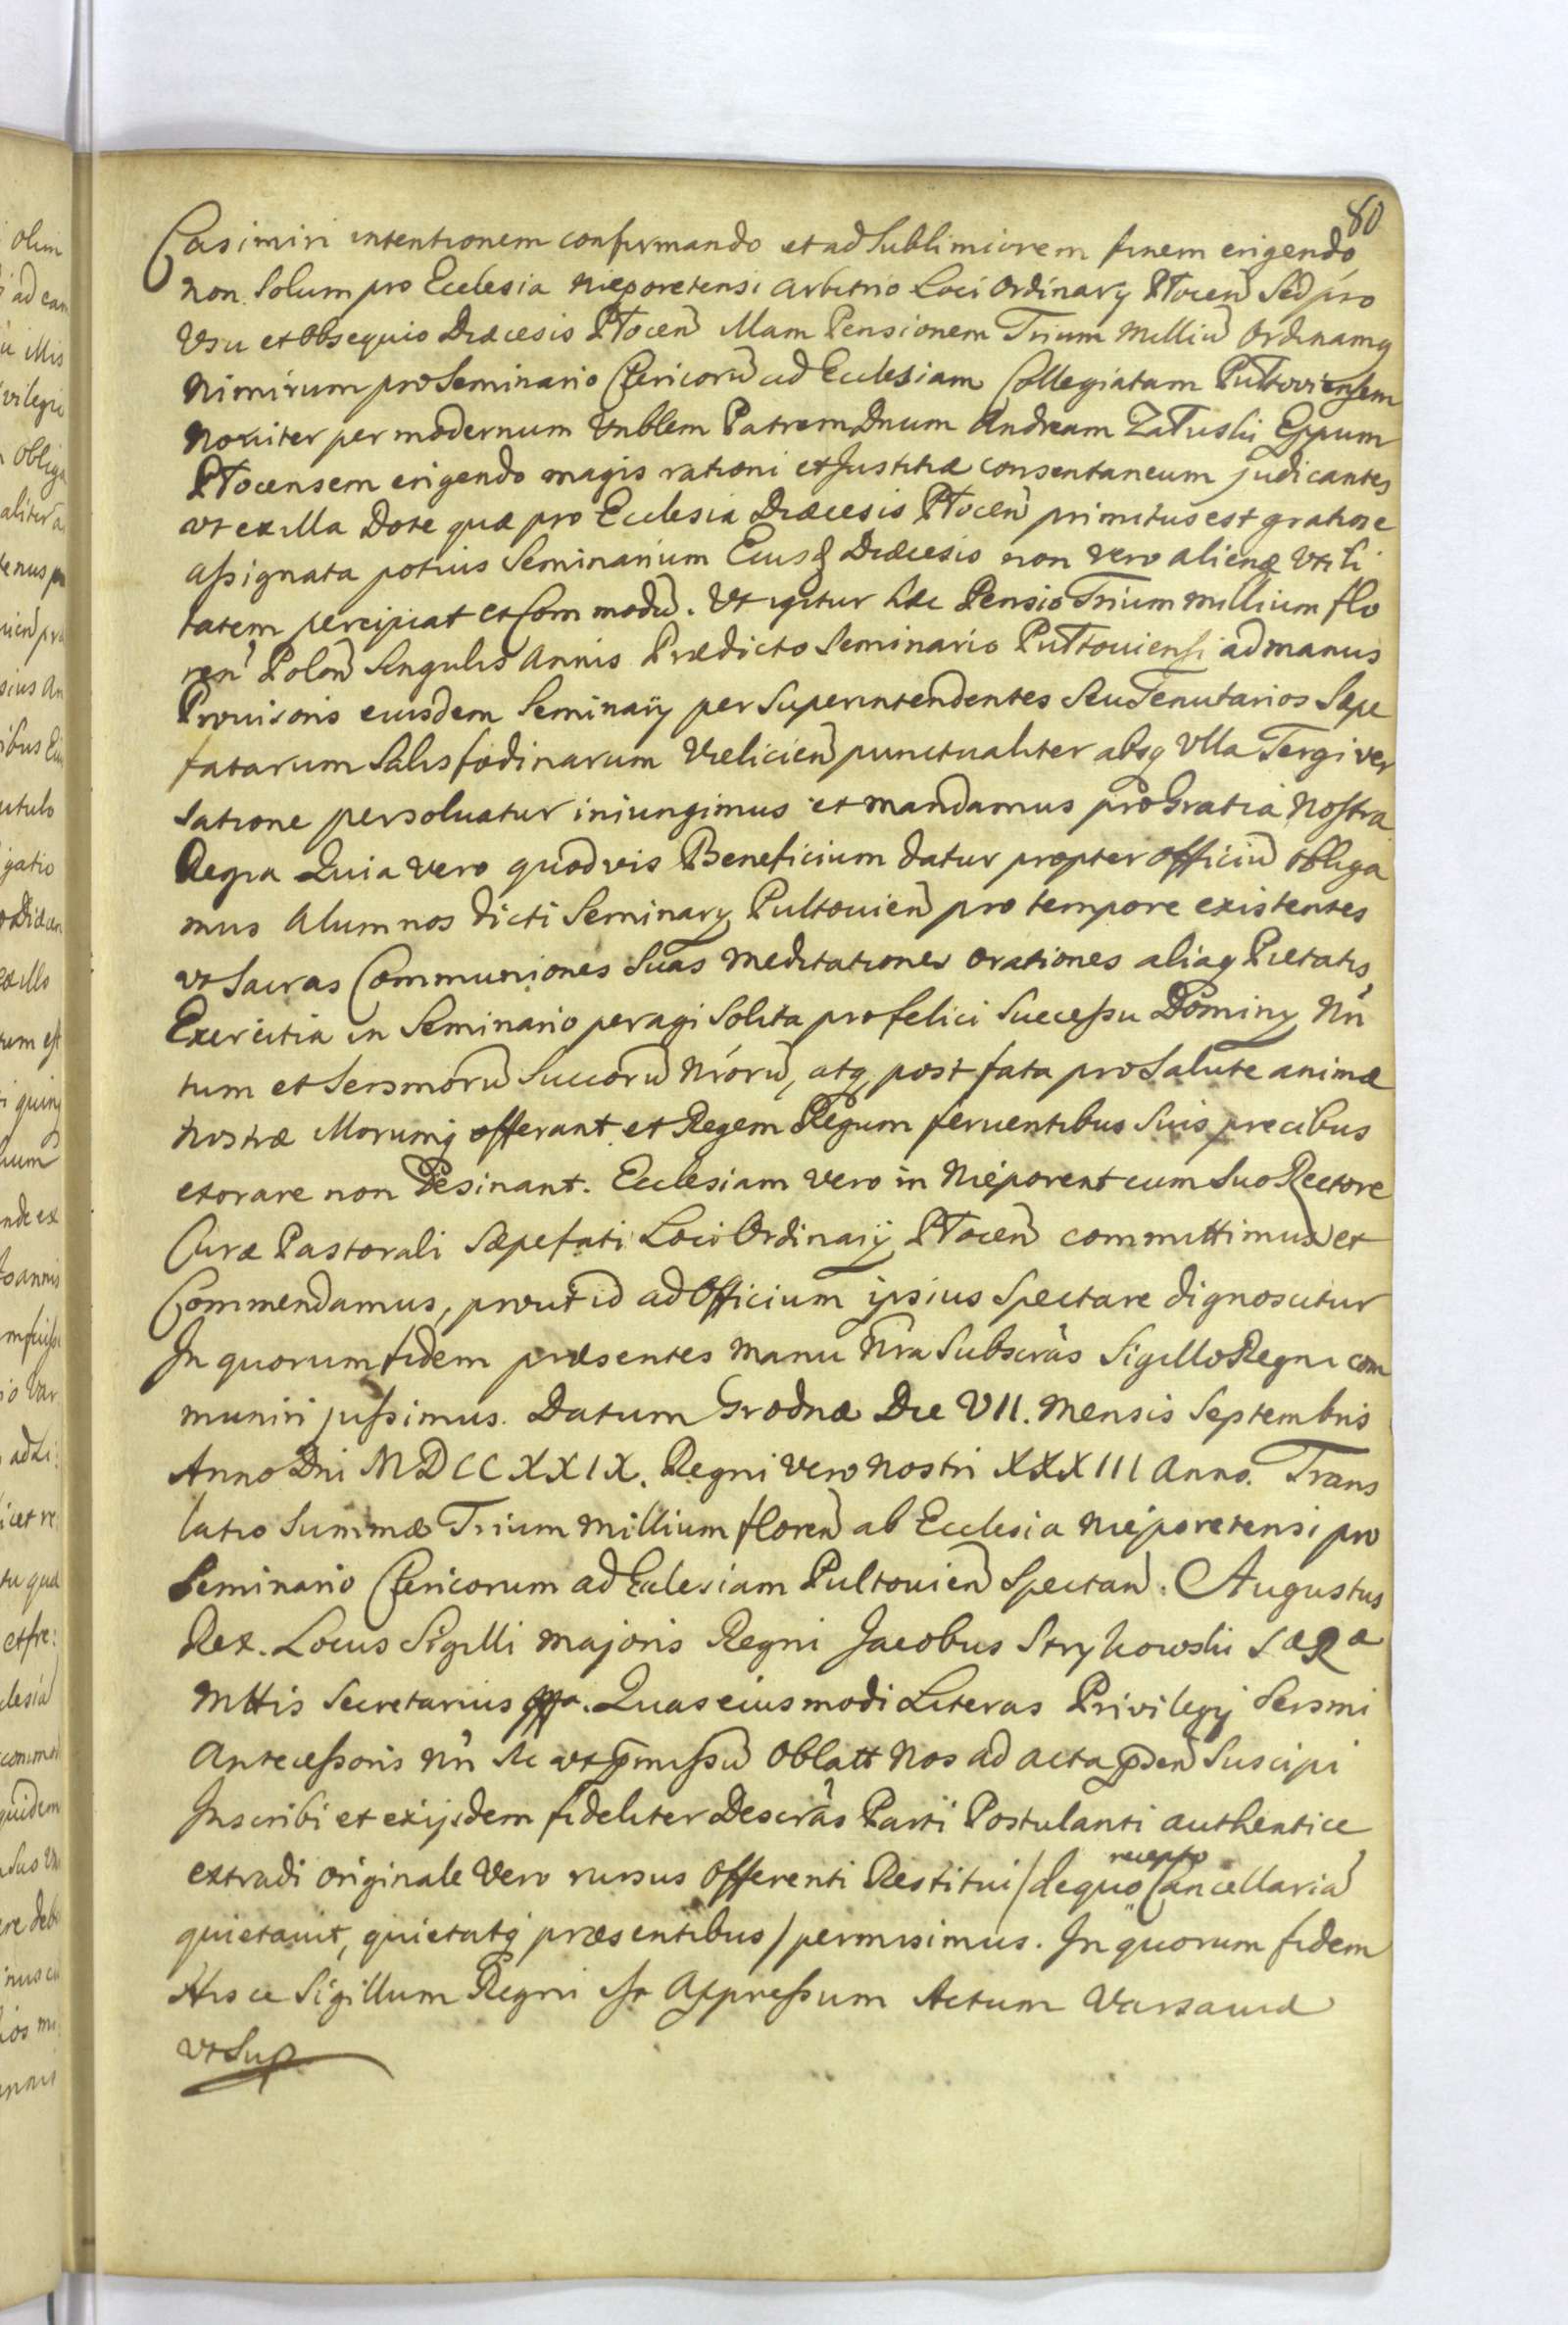 80
Casimiri intentionem confirmando et ad Sublimiorem finem erigendo
non Solum pro Ecclesia Nieporetensi arbitrio Loci Ordinarÿ Płocen̄ Sed pro
Usu et Obsequio Diæcesis Płocen̄ illam Pensionem Trium Milliū Ordinamq
Nimirum pro Seminario Clericorū ad Ecclesiam Collegiatam Pułtoviensem
Noviter per modernum Vnblem Patrem Dnum Andream Załuski Eppum
Płocensem erigendo magis rationi et Justitiæ consentaneum judicantes
vt ex illa Dote quæ pro Ecclesia Diæcesis Płocen̄ primitus est gratiose
assignata potius Seminarium Eiusd Diæcesis non vero alienæ Vtili
tatem percipiat et Commodū. Vt igitur hæc Pensio Trium millium flo
ren̄ Polon̄ Singulis Annis Prædicto Seminario Pułtouiensi ad manus
Prouisoris eiusdem Seminarÿ per Superintendentes Seu Tenutarios Sæpe
fatarum Salis fodinarum Vielicien̄ punctualiter absq Vlla Tergiver
satione persoluatur iniungimus et mandamus pro Gratia Nostra
Regia Quia vero quodvis Beneficium datur propter officiū obliga
mus Alumnos dicti Seminarÿ Pultouien̄ pro tempore existentes
vt Sacras Communiones Suas Meditationes Orationes aliaq Pietatis
Exercitia in Seminario peragi Solita pro felici Successu Dominÿ Nri
tum et Sersmorū Succorū Nrorū, atq post fata pro Salute animæ
Nostræ illorumq offerant et Regem Regum feruentibus Suis precibus
exorare non Desinant. Ecclesiam vero in Nieporent cum Suo Rectore
Curæ Pastorali Sæpefati Loci Ordinarÿ Płocen̄ committimus et
Commendamus, prout id ad Officium ipsius Spectare dignoscitur
In quorum fidem præsentes Manu Nra Subscras Sigillo Regni com
muniri jussimus. Datum Grodnæ Die VII. Mensis Septembris
Anno Dni MDCCXXIX. Regni Vero Nostri XXXIII Anno. Trans
latio Summæ Trium Millium floren̄ ab Ecclesia Nieporetensi pro
Seminario Clericorum ad Ecclesiam Pultouien̄ Spectan̄. Augustus
Rex. Locus Sigilli majoris Regni Jacobus Strykowski Sæ Ræ
Mttis Secretarius. Quas eiusmodi Literas Privilegÿ Sersmi
Antecessoris Nri Ac vt pmissū Oblatt Nos ad acta psen̄ Suscipi
Inscribi et exijsdem fideliter Descras Parti Postulanti authentice
extradi Originale Vero rursus Offerenti Restitui / de quo recepto Cancellariā
quietauit, quietatq præsentibus / permisimus. In quorum fidem
Hisce Sigillum Regni est Appressum Actum Varsauiæ
vt Sup